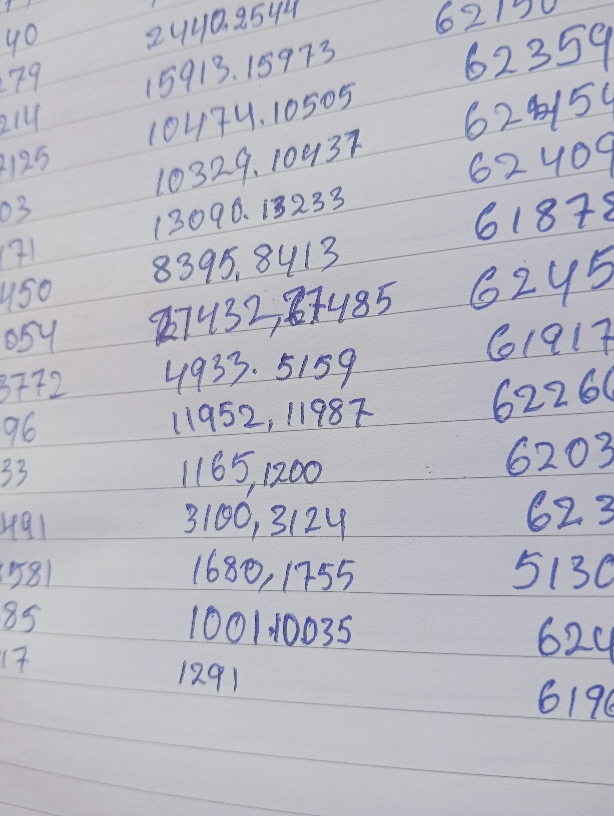 40 2440.2544 62150
279 15913.15973 62359
214 10474.10505
7125 10329.10437 62409
03 13090.13233 61878
171 8395,8413 6245
450 27432,27485 61917
054 4933.5159 62266
3772 11952,11987 6203
96 1165,1200 623
33 3100,3124 5130
491 1680,1755 624
3581 10011.10035 6196
85 1291
17